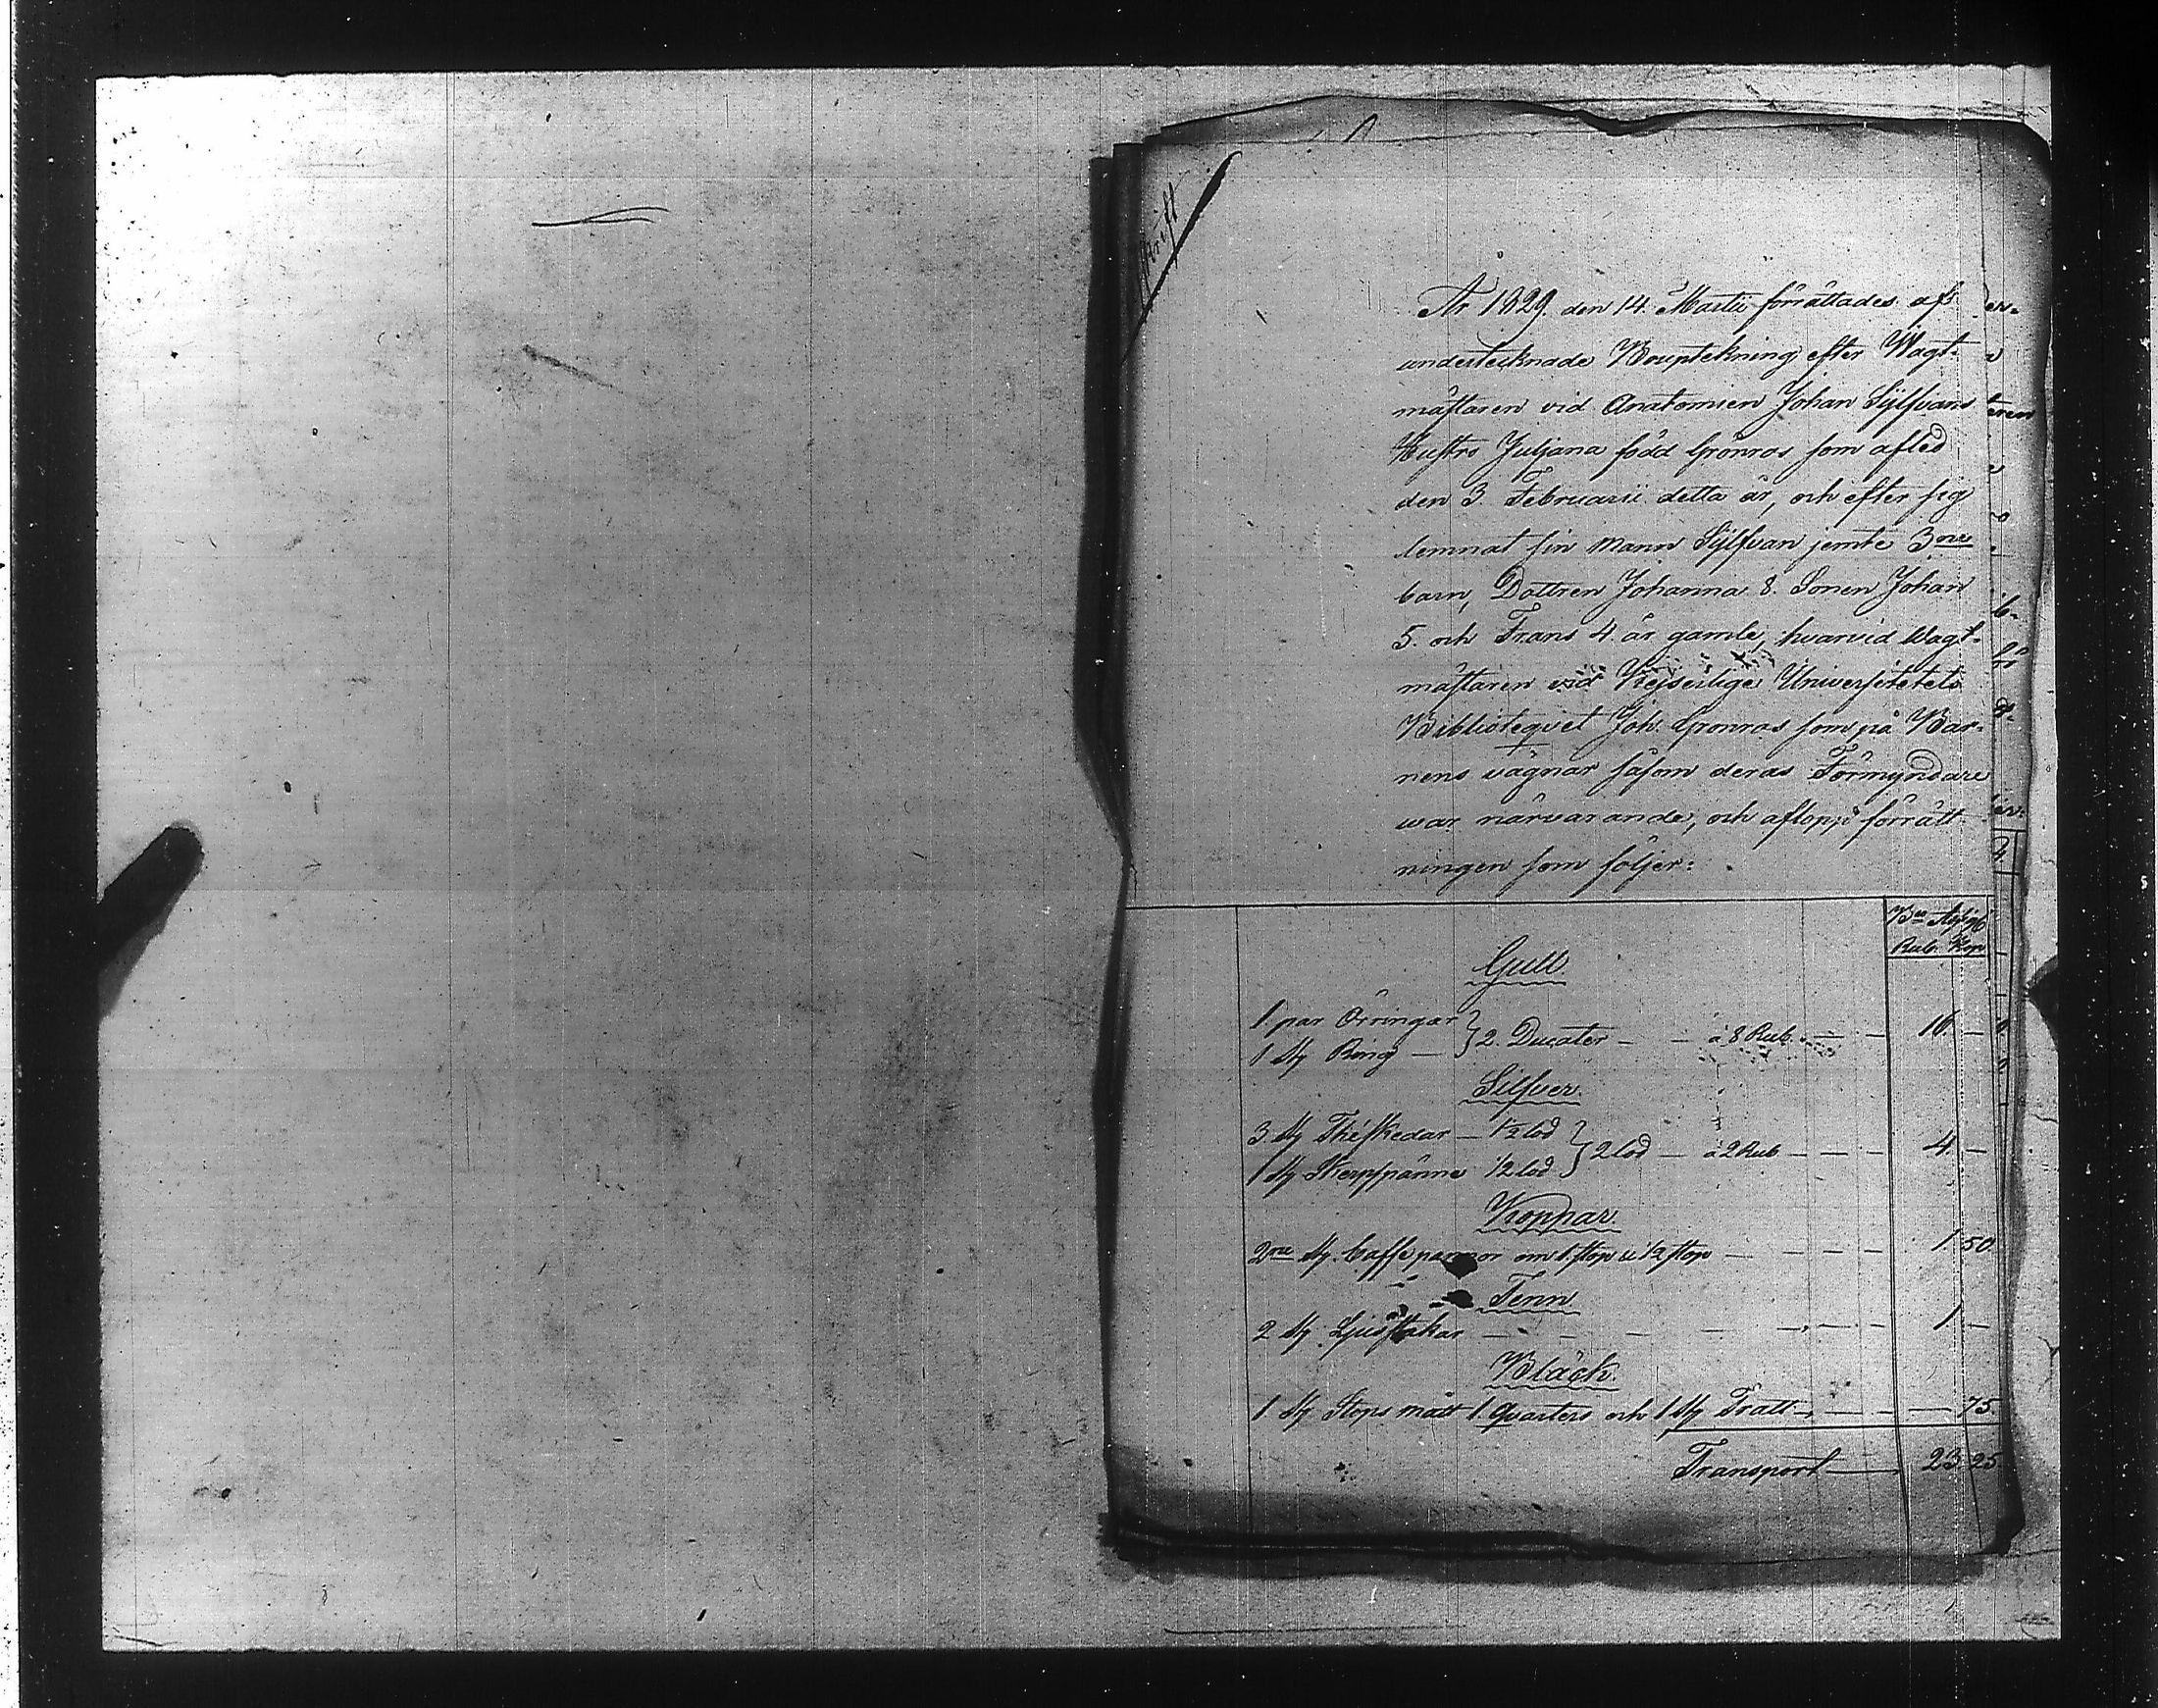 År 1829. den 14. Martii förrättades af
undertecknade Bouptekning efter Wagt-
mästaren vid Anatomien Johan Sylfvans
Hustro Juljana född Grönros som afled
den 3. Februarii detta år, och efter sig
lemnat sin Mann Sylfvan jemte 3ne
barn, Dottren Johanna 8. Sonen Johan
5. och Frans 4. år gamle, hvarvid Wagt-
mästaren vid Kejserlige Universitetets
Biblioteqvet Joh. Grönros som på Bar-
nens vägnar såsom deras Förmyndare
war närvarande, och aflopp förrätt
ningen som följer:
Bco Assign
Rub. Kop
Gull
1 par Örringar } 2. Ducater — — à 8 Rub. — — 16. —
1 st Ring —
Silfver.
3 st Théskedar — 1½ lod } 2 lod — à 2 Rub — — — 4. —
1 st ½ lod
Koppar
2ne st. Caffepannor om 1. stop u ½ stop — — — — 1. 50.
Tenn
2 st. Ljusstakar — — — — — — — 1 —
Bläck.
1 st Stops mått 1 Qvarters och 1 st Tratt — — — — 75.
Transport — 23 25.